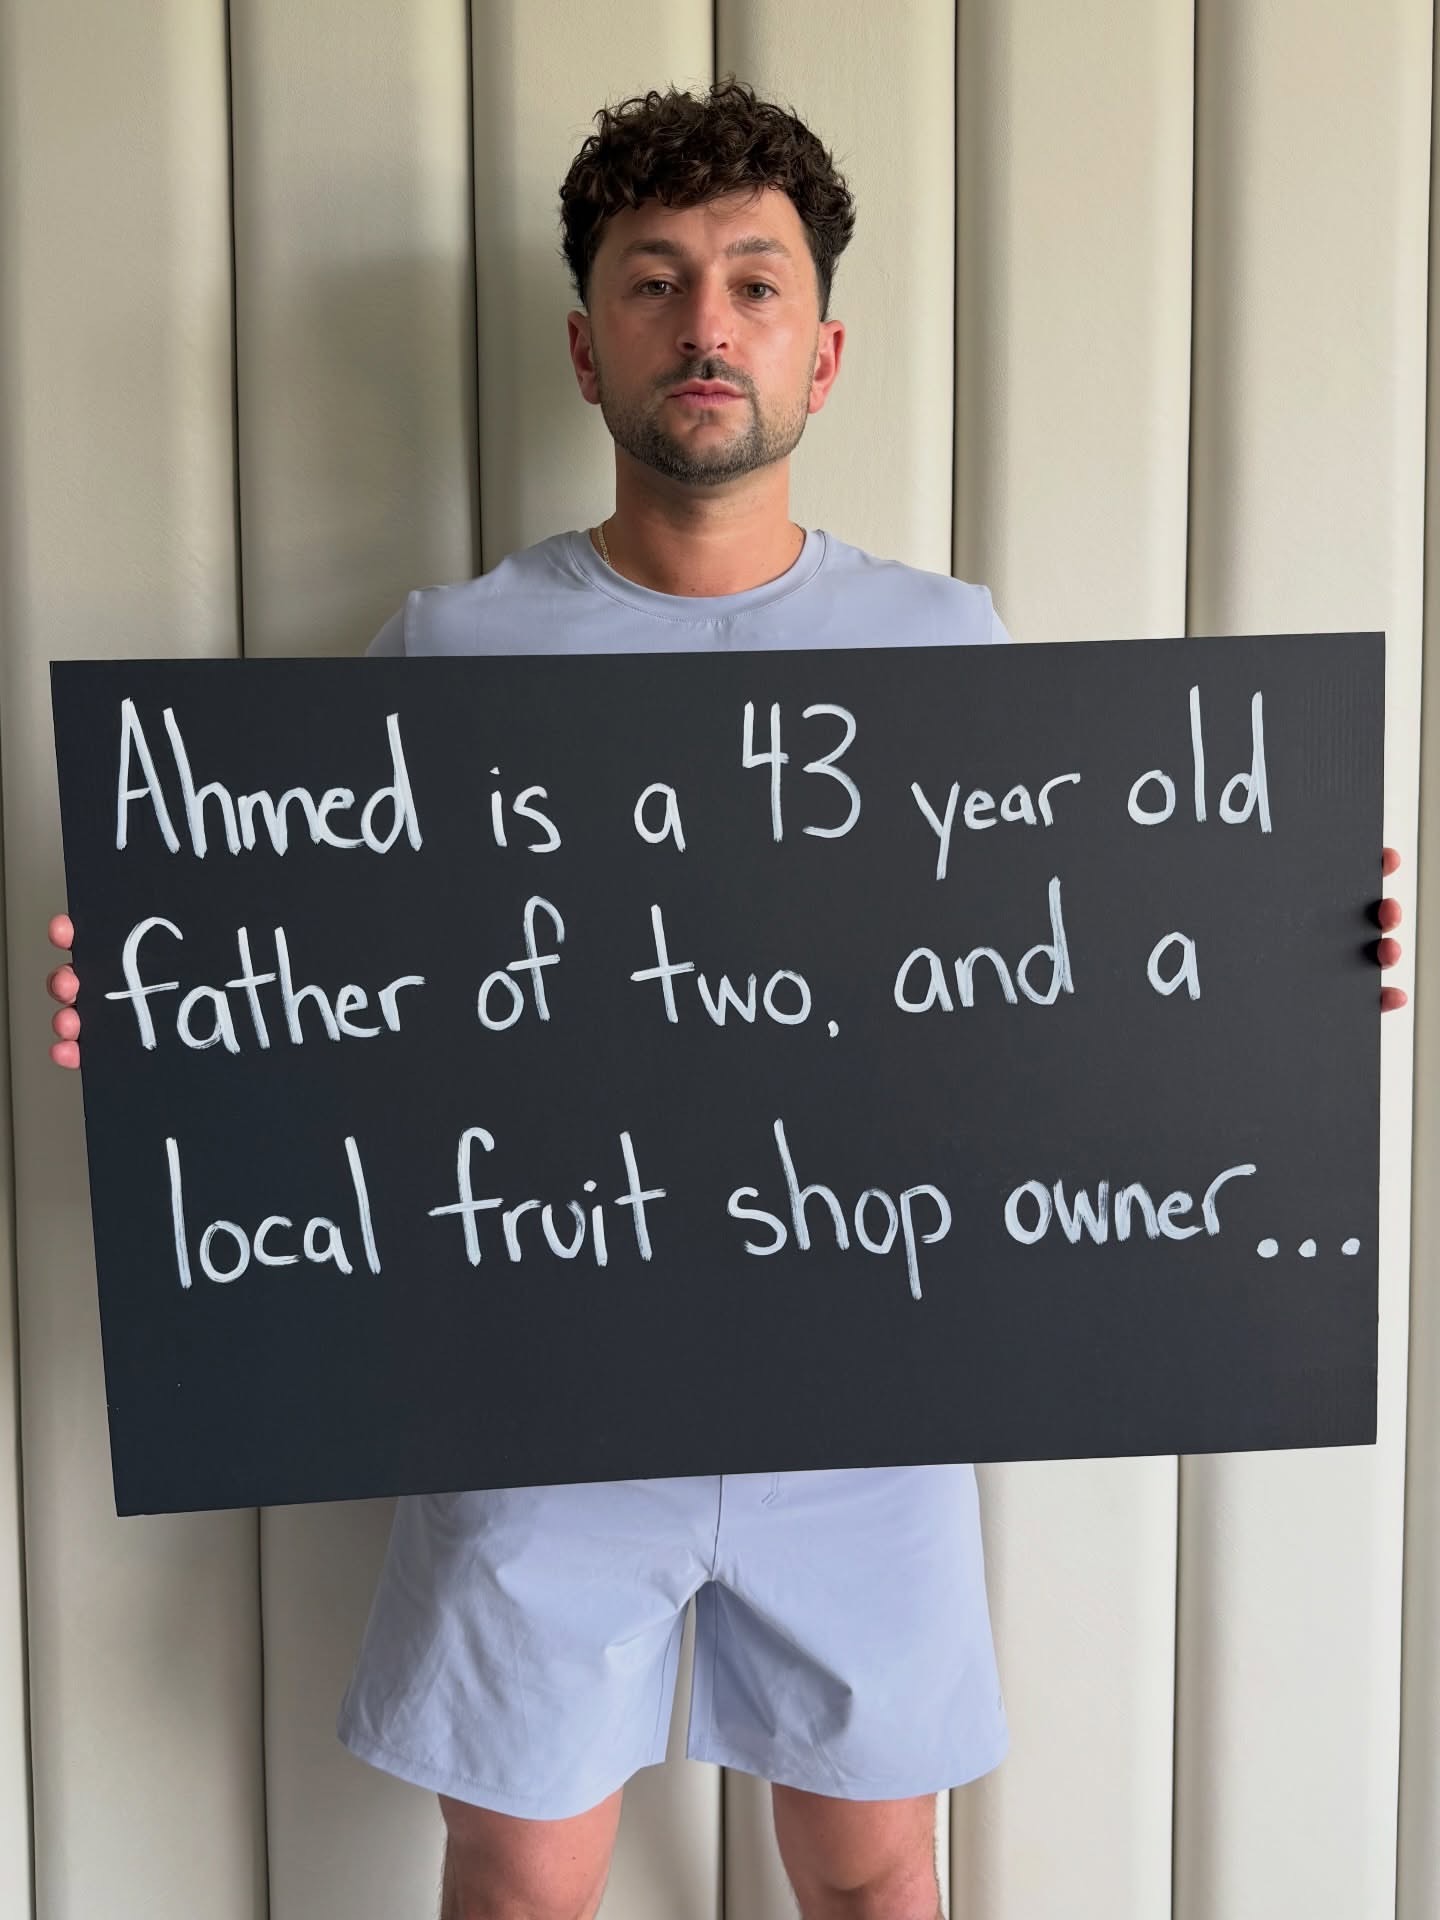 Ahmed is a 43 year old
father of two, and a
local fruit shop owner...